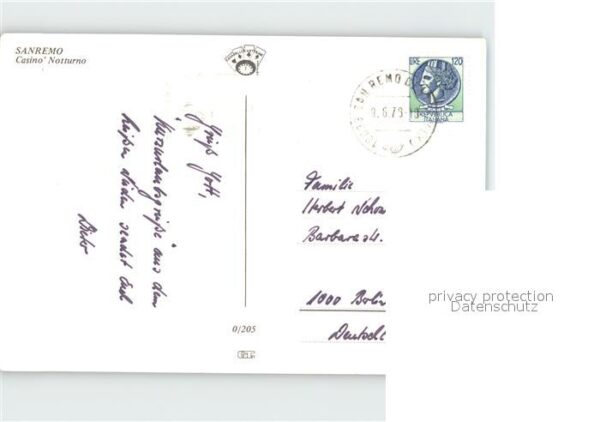 SANREMO
Casino' Notturno
LIRE 120
REPUBBLICA
ITALIANA
SAN REMO
.6.79
Grüß Gott,
Kurzurlaubsgrüße aus dem
heißen Süden sendet Euch
Dieter
Familie
Herbert
Barbarastr.
1000 Berlin
Deutschl
0/205
privacy protection
Datenschutz